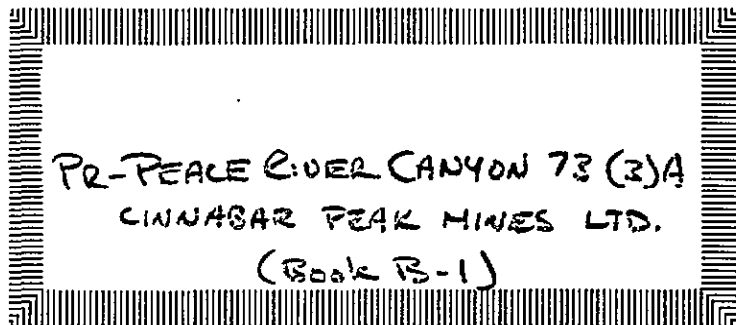 PR-PEACE RIVER CANYON 73(3)A
CINNABAR PEAK MINES LTD.
(Book B-1)